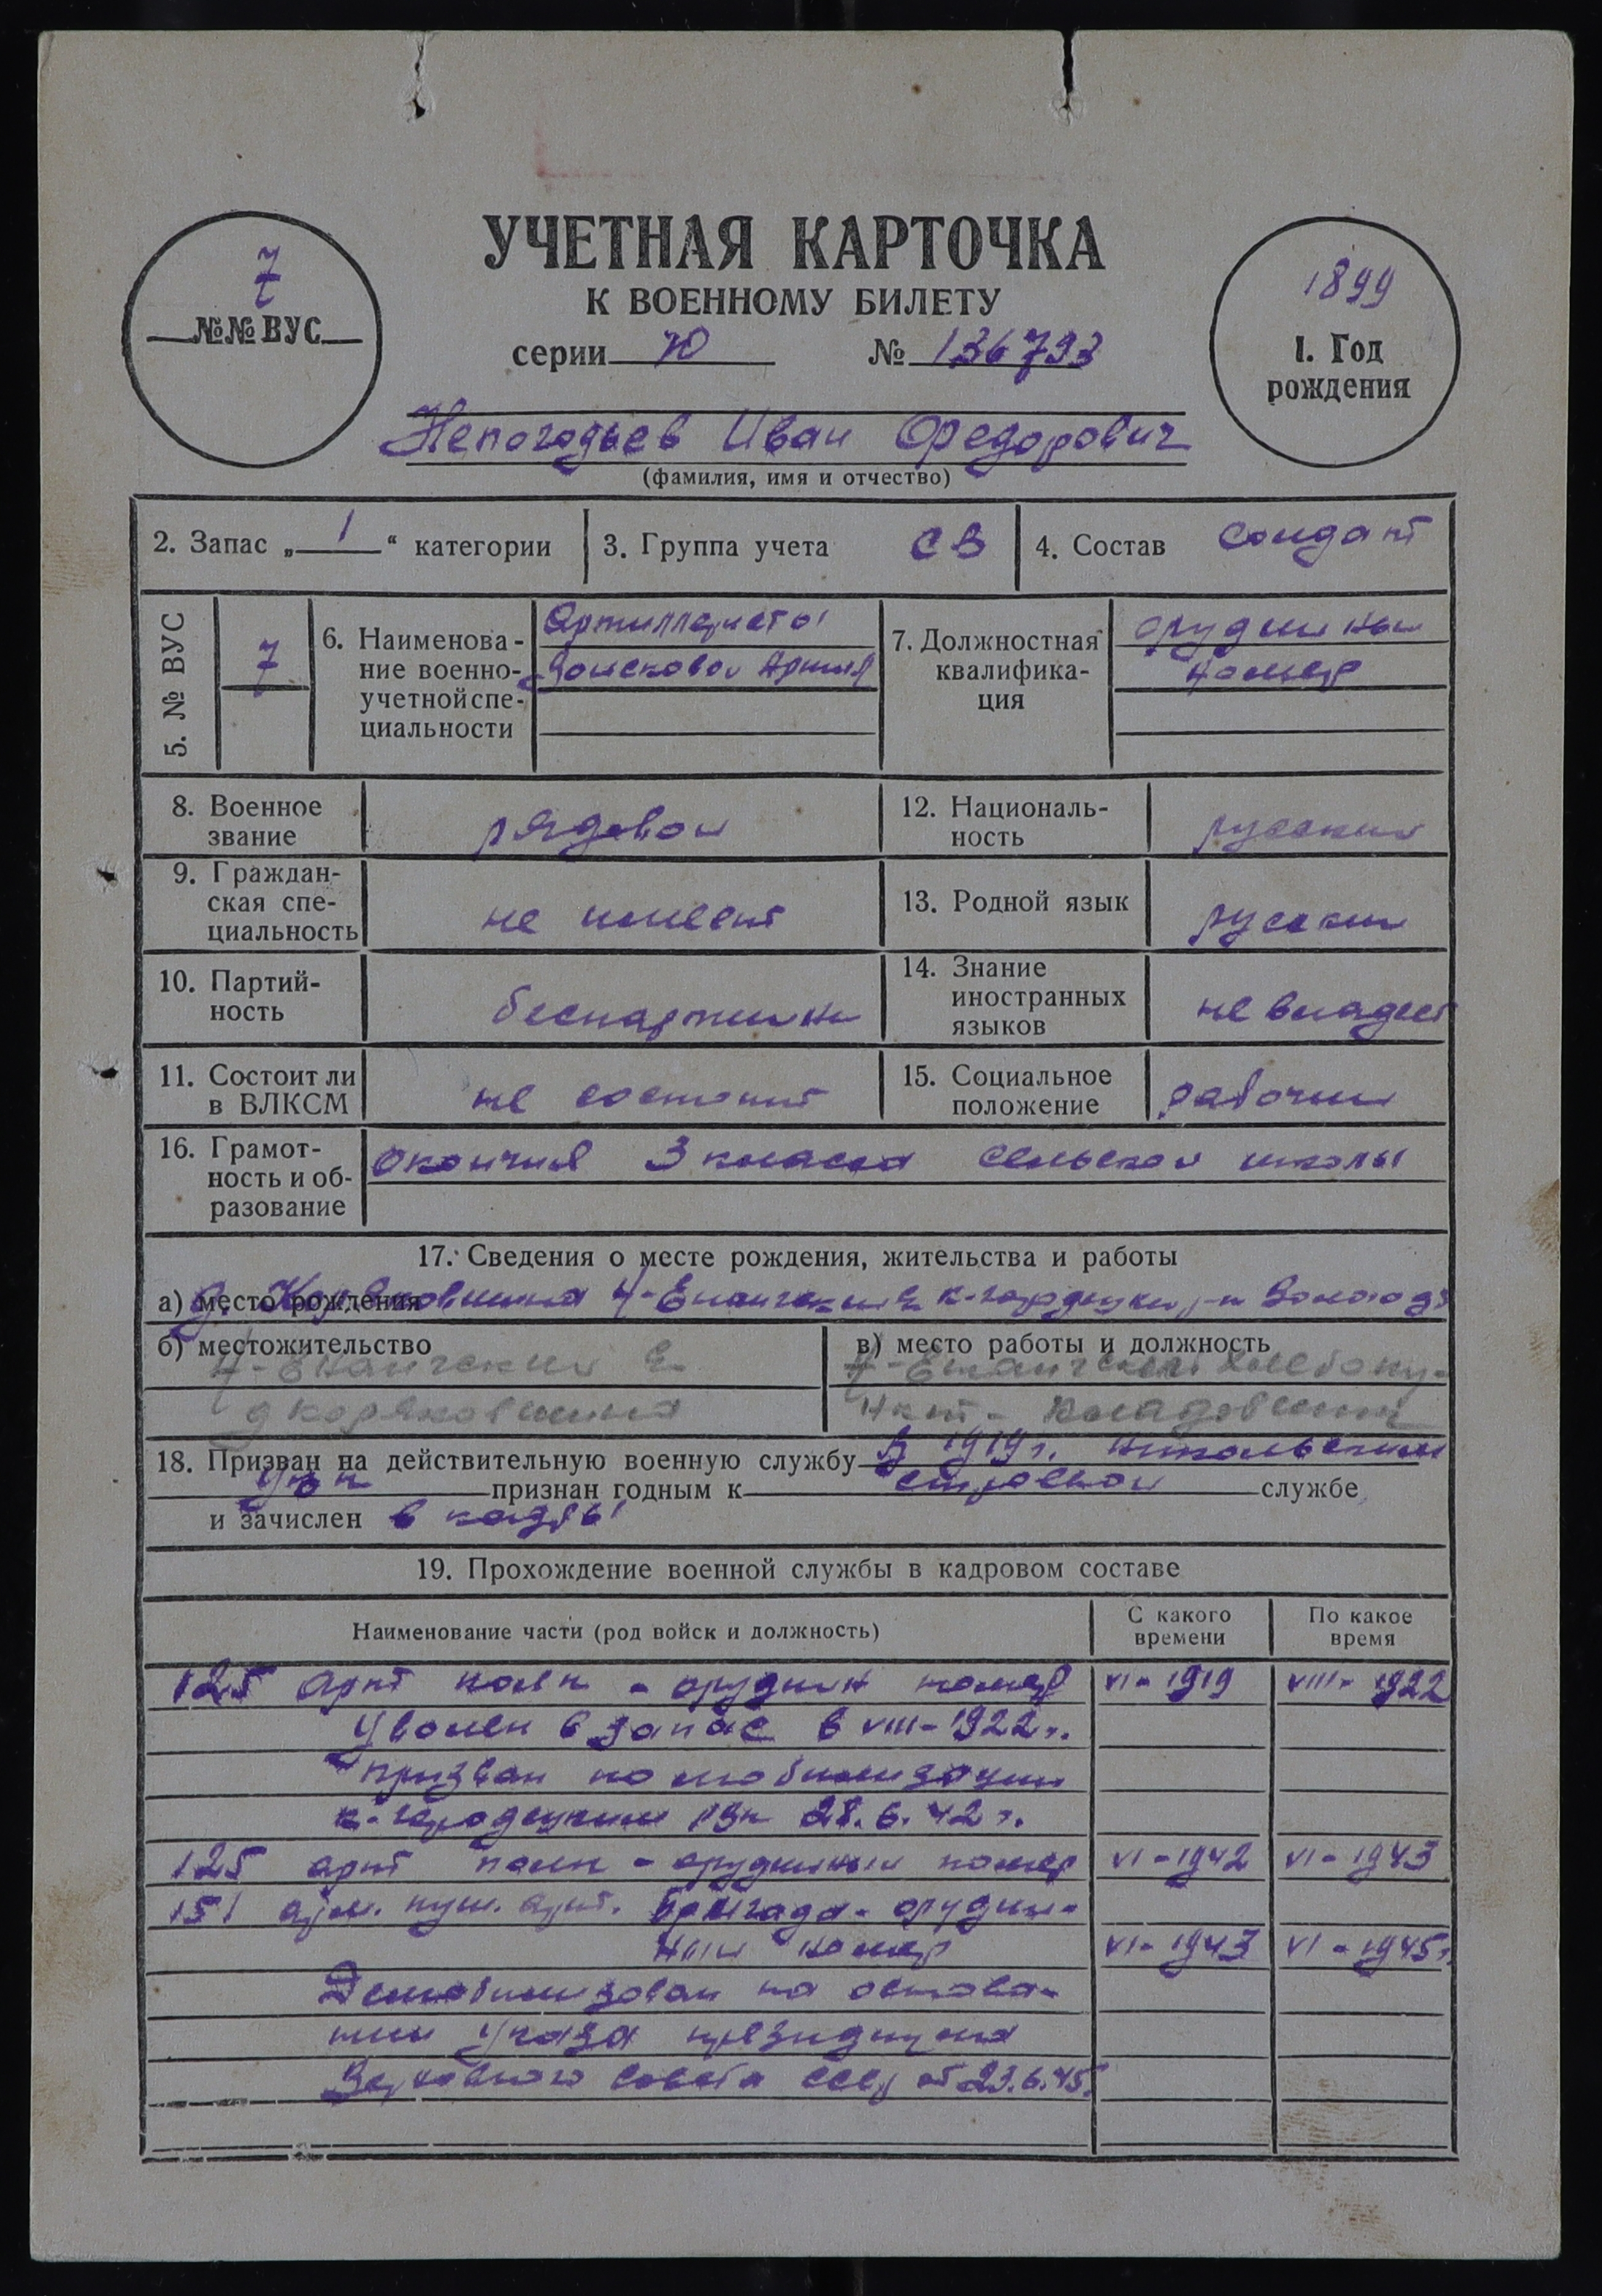 УЧЕТНАЯ КАРТОЧКА
К ВОЕННОМУ БИЛЕТУ
серии Ю № 136793
7
№№ ВУС
1899
1. Год
рождения
Непогодьев Иван Федорович
(фамилия, имя и отчество)
2. Запас „ 1 “ категории
3. Группа учета СВ
4. Состав Солдат
5. № ВУС 7
6. Наименова-
ние военно-
учетной спе-
циальности
Артиллеристы
Войсковой Артил
7. Должностная
квалифика-
ция
орудийный
номер
8. Военное
звание
рядовой
12. Националь-
ность
русский
9. Граждан-
ская спе-
циальность
не имеет
13. Родной язык
русский
10. Партий-
ность
беспартийн
14. Знание
иностранных
языков
не владеет
11. Состоит ли
в ВЛКСМ
не состоит
15. Социальное
положение
рабочий
16. Грамот-
ность и об-
разование
Окончил 3 класса сельской школы
17. Сведения о месте рождения, жительства и работы
а) место рождения д. Коряковшина Н-Енангский к-городецкий р-н Волого
б) местожительство
Н-Енангский
д Коряковшина
в) место работы и должность
Н-Енангский хлебопу-
нкт - Кладовщик
18. Призван на действительную военную службу В 1919 г. Никольским
Увк признан годным к строевой службе
и зачислен в кадры
19. Прохождение военной службы в кадровом составе
Наименование части (род войск и должность)
С какого
времени
По какое
время
125 арт полк - орудийн номер VI - 1919 VIII - 1922
Уволен в запас в VIII - 1922 г.
призван по мобилизации
к-городецким РВК 28.6.42 г.
125 арт полк - орудийный номер VI - 1942 VI - 1943
151 арм. пуш. арт. Бригада - орудий-
ный номер VI - 1943 VI - 1945 г.
Демобилизован на основа-
нии Указа президиума
Верховного Совета СССР от 23.6.45